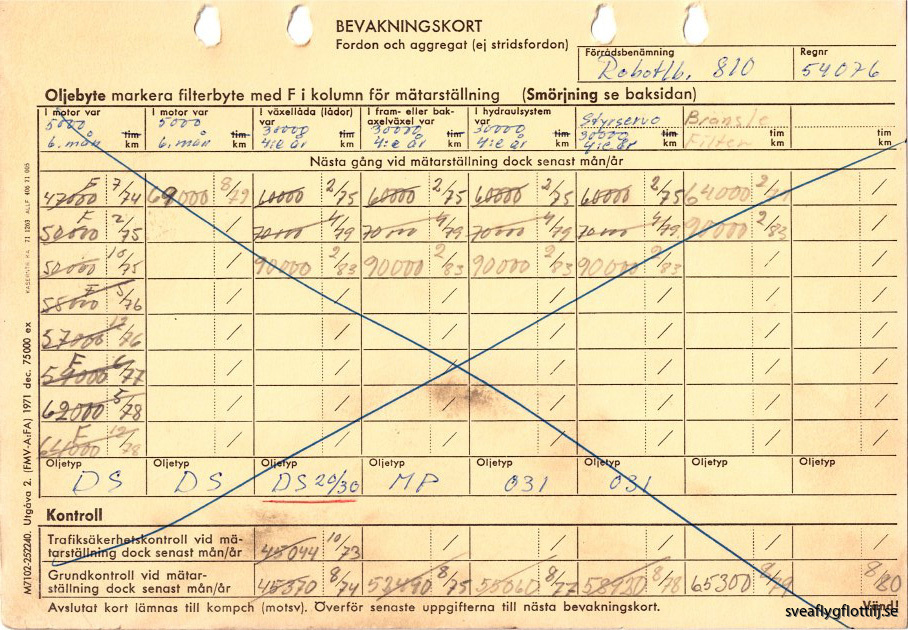 BEVAKNINGSKORT
Fordon och aggregat (ej stridsfordon)
Förrådsbenämning Regnr
Robotlb. 810 54076
Oljebyte markera filterbyte med F i kolumn för mätarställning (Smörjning se baksidan)
I motor var I motor var I växellåda (lådor) var I fram- eller bakaxelväxel var I hydraulsystem var Styrservo Bränsle
5000 5000 30000 30000 30000 30000 Filter
6. mån 6. mån 4:e år 4:e år 4:e år 4:e år
tim km tim km tim km tim km tim km tim km tim km tim km
Nästa gång vid mätarställning dock senast mån/år
F 47000 7/74 69000 8/79 60000 2/75 60000 2/75 60000 2/75 60000 2/75 64000 /
F 50000 2/75 / 70000 4/79 70000 4/79 70000 4/79 70000 4/79 90000 2/83 /
50000 10/75 / 90000 2/83 90000 2/83 90000 2/83 90000 2/83 / /
F 58000 5/76 / / / / / / /
57000 12/76 / / / / / / /
F 6/77 / / / / / / /
62000 5/78 / / / / / / /
F 64000 12/78 / / / / / / /
Oljetyp Oljetyp Oljetyp Oljetyp Oljetyp Oljetyp Oljetyp Oljetyp
DS DS DS 20/30 MP 031 031
Kontroll
Trafiksäkerhetskontroll vid mä-
tarställning dock senast mån/år 45044 10/73 / / / / /
Grundkontroll vid mätar-
ställning dock senast mån/år 45370 8/74 53490 8/75 55060 8/77 58920 8/78 65300 8/79 8/80
Avslutat kort lämnas till kompch (motsv). Överför senaste uppgifterna till nästa bevakningskort. Vänd!
M7102-252240. Utgåva 2. (FMV-A:FA) 1971 dec. 75000 ex
sveaflygflottilj.se